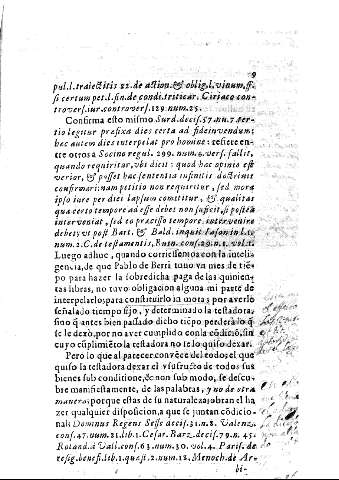 9
pul.l.traiectitis 22.de action.& oblig.l.vinum,ff.
si certum pet.l.fin.de condi.triticar. Ciriaco con-
trovers.iur.controvers.129.num.25.
Confirma esto mismo Surd.decis.57.nu.7.ter-
tio legitur prefixa dies certa ad fideinvendum;
hac autem dies interpelat pro homine: refiere en-
tre otros a Socino regul. 299. num.6.vers. fallit,
quando requiritur, ubi dicit: quod hac opinio est
verior, & posset hac sententia infinitis doctrinis
confirmari: nam petitio non requiritur, sed mora
ipso iure per dies lapsum comittitur, & qualitas
qua certo tempore adesse debet non sufficit, si postea
interveniat, sed to precisso tempore intervenire
debet; ut post Bart. & Bald. inquit Iason in l.1.
num.2.C. de testamentis, Ruin. cons.29.n.1. vol.1.
Luego adhuc, quando corriessemos con la inteli
gencia, de que Pablo de Berti tuvo un mes de tiẽ
po para hazer la sobredicha paga de las quinien-
tas libras, no tuvo obligacion alguna mi parte de
interpelarlo, para constituirlo in mora; por averlo
señalado tiempo fijo, y determinado la testadora,
sino q̃ antes bien passado dicho tiẽpo perderà lo q̃
se le dexò, por no aver cumplido con la cõdiciõ, sin
cuyo cũplimiẽto la testadora no te lo quiso dexar.
Pero lo que al parecer convẽce del todo, el que
quiso la testadora dexar el vsufructo de todos sus
bienes sub conditione, & non sub modo, se descu-
bre manifiestamente, de las palabras, y no de otra
manera; porque estas de su naturaleza obran el ha
zer qualquier disposicion, a que se juntan cõdicio-
nal: Dominus Regens Surdus decis.31.n.8. Valenz.
cons.47.num.21.lib.1. Cesar. Barz. decis.79.n. 45.
Roland. à Vall. cons.63.num.30. vol.4. Paris. de
resig.benefi.lib.1.quest.2.num.12. Menoch. de Ar-
bi-